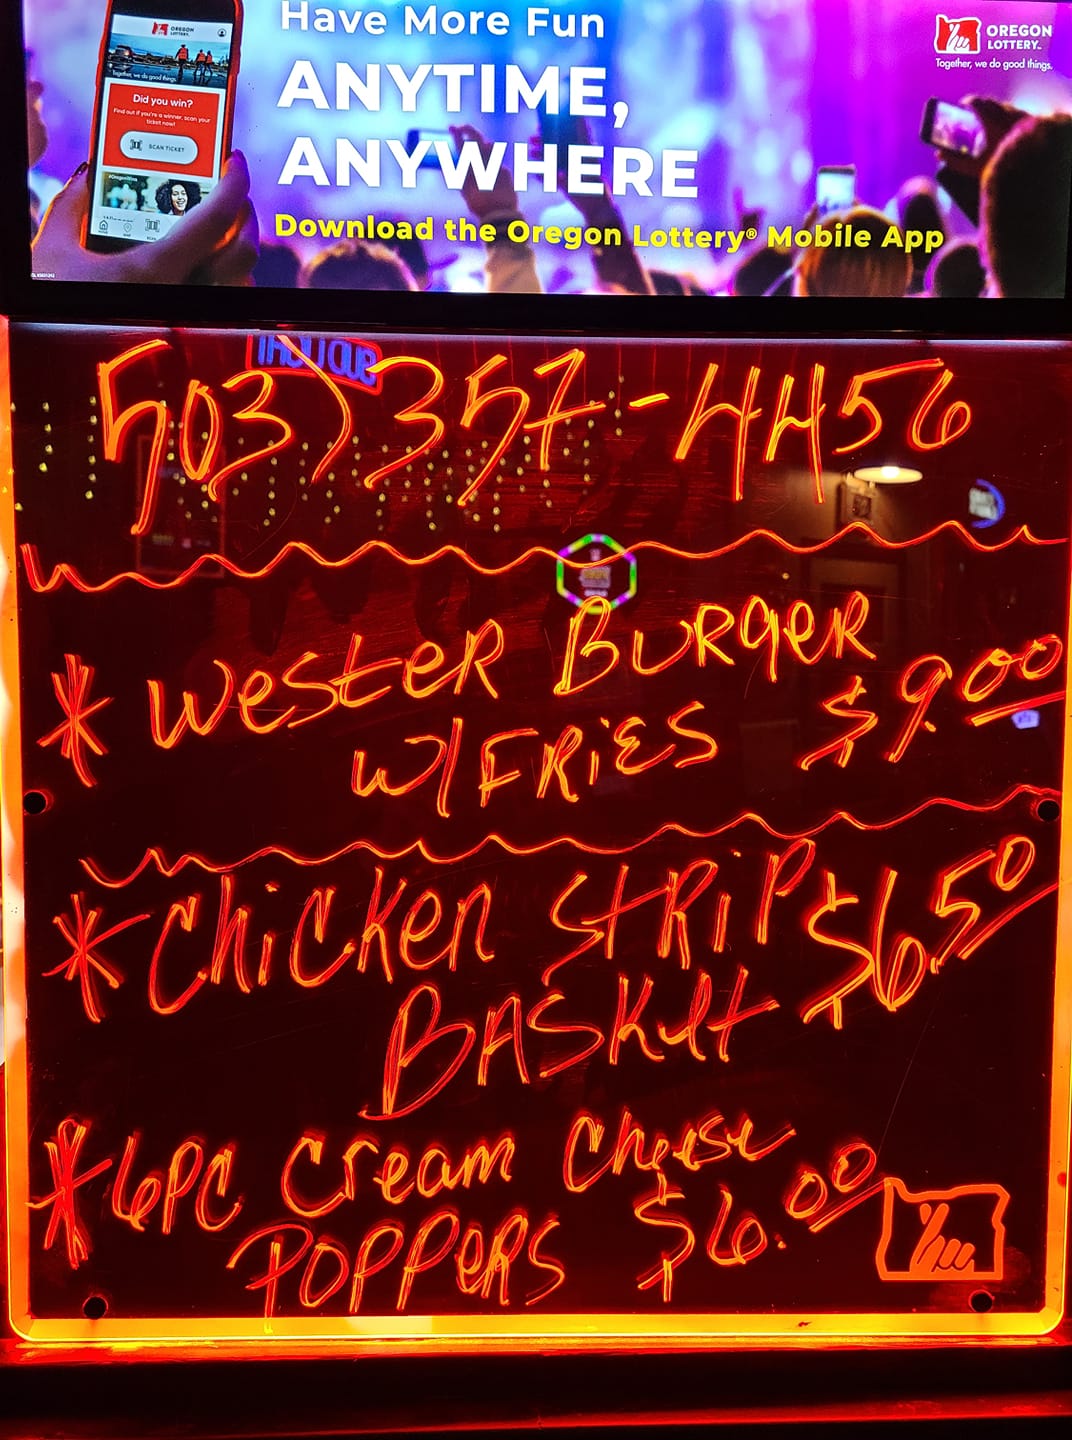 OREGON
LOTTERY.
Together, we do good things.
Did you win?
Find out if you're a winner, scan your
ticket now!
SCAN TICKET
Have More Fun
ANYTIME,
ANYWHERE
Download the Oregon Lottery® Mobile App
OREGON
LOTTERY.
Together, we do good things.
503) 357-4456
* Wester Burger
W/ FRIES $9.00
* Chicken Strip $6.50
Basket
* 6PC Cream Cheese
Poppers $6.00